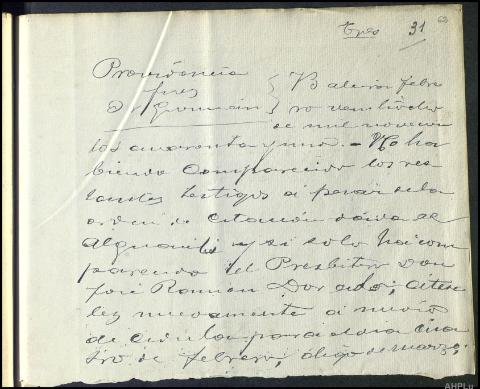 Tres
31
63
Providencia
Juez
Sr Guzman
Baleira febre
ro veintiocho
de mil novecien
tos cuarenta y uno. - No ha
biendo comparecido los res
tantes testigos a pesar de la
orden de citación dada al
Alguacil y si solo ha com
parecido el Presbitero Don
José Ramon Dorado; cítese
les nuevamente a medio
de cédula para el dia cua
tro de febrero, digo de marzo;
AHPLu